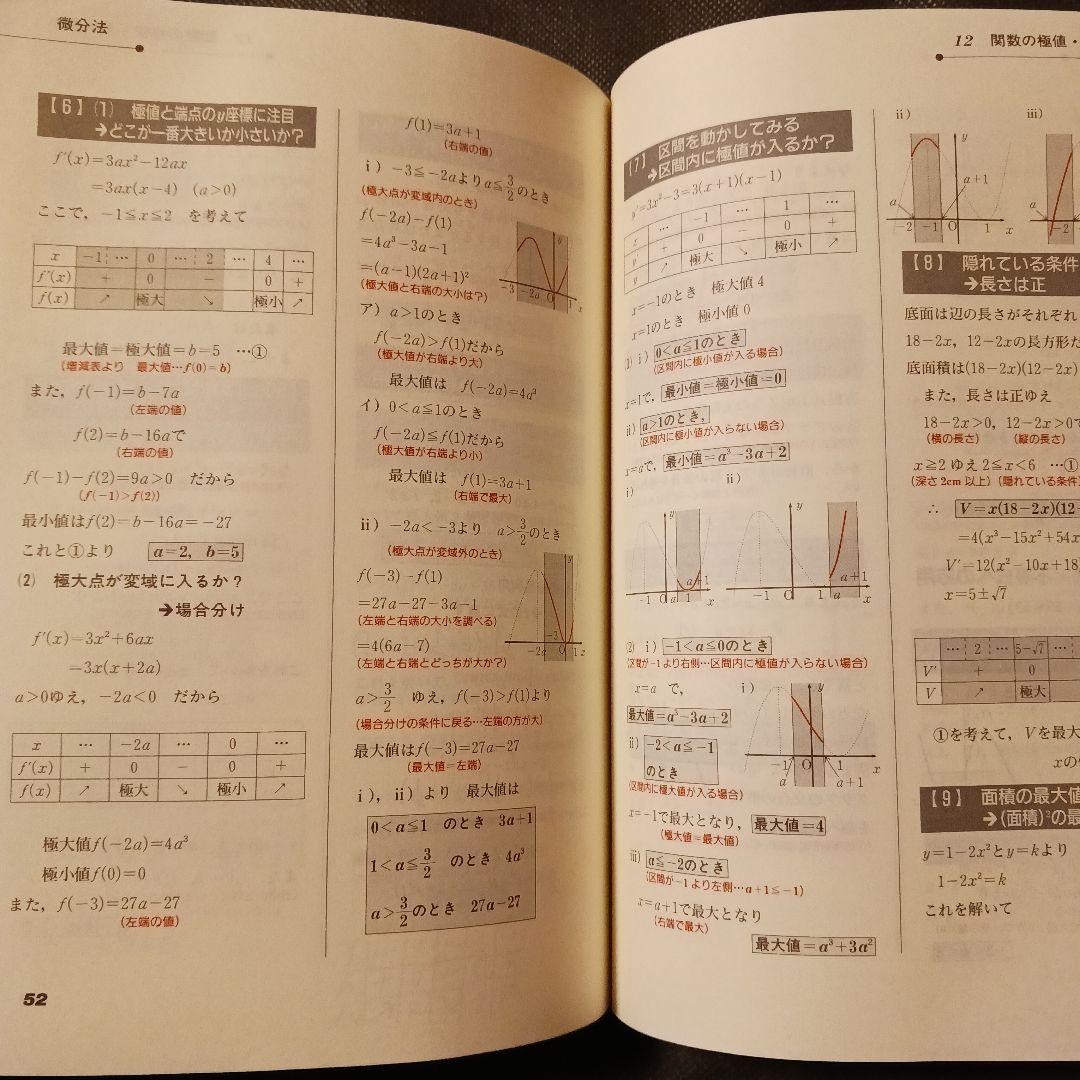 微分法
【6】(1) 極値と端点のy座標に注目
➔どこが一番大きいか小さいか?
f′(x)=3ax²−12ax
=3ax(x−4) (a>0)
ここで, −1≦x≦2 を考えて
x −1 … 0 … 2 … 4 …
f′(x) + 0 − 0 +
f(x) ↗ 極大 ↘ 極小 ↗
最大値=極大値=b=5 …①
(増減表より 最大値…f(0)=b)
また, f(−1)=b−7a
(左端の値)
f(2)=b−16aで
(右端の値)
f(−1)−f(2)=9a>0 だから
(f(−1)>f(2))
最小値はf(2)=b−16a=−27
これと①より a=2, b=5
(2) 極大点が変域に入るか?
➔場合分け
f′(x)=3x²+6ax
=3x(x+2a)
a>0ゆえ, −2a<0 だから
x … −2a … 0 …
f′(x) + 0 − 0 +
f(x) ↗ 極大 ↘ 極小 ↗
極大値f(−2a)=4a³
極小値f(0)=0
また, f(−3)=27a−27
(左端の値)
52
f(1)=3a+1
(右端の値)
i) −3≦−2aよりa≦3/2のとき
(極大点が変域内のとき)
f(−2a)−f(1)
=4a³−3a−1
=(a−1)(2a+1)²
(極大値と右端の大小は?)
−3 −2a 0 1 x
ア) a>1のとき
f(−2a)>f(1)だから
(極大値が右端より大)
最大値は f(−2a)=4a³
イ) 0<a≦1のとき
f(−2a)≦f(1)だから
(極大値が右端より小)
最大値は f(1)=3a+1
(右端で最大)
ii) −2a<−3より a>3/2のとき
(極大点が変域外のとき)
f(−3)−f(1)
=27a−27−3a−1
(左端と右端の大小を調べる)
=4(6a−7)
(左端と右端とどっちが大か?)
−2a −3 0 1 x
a>3/2 ゆえ, f(−3)>f(1)より
(場合分けの条件に戻る…左端の方が大)
最大値はf(−3)=27a−27
(最大値=左端)
i), ii) より 最大値は
0<a≦1 のとき 3a+1
1<a≦3/2 のとき 4a³
a>3/2のとき 27a−27
12 関数の極値・
【7】 区間を動かしてみる
➔区間内に極値が入るか?
y′=3x²−3=3(x+1)(x−1)
x … −1 … 1 …
y′ + 0 − 0 +
y ↗ 極大 ↘ 極小 ↗
x=−1のとき 極大値 4
x=1のとき 極小値 0
(1) i) 0<a≦1のとき
(区間内に極小値が入る場合)
x=1で, 最小値=極小値=0
ii) a>1のとき,
(区間内に極小値が入らない場合)
x=aで, 最小値=a³−3a+2
i) ii)
y −1 0 a 1 a+1 x
y −1 0 1 a a+1 x
(2) i) −1<a≦0のとき
(区間が−1より右側…区間内に極値が入らない場合)
x=a で, i)
最大値=a³−3a+2
y −1 a 0 1 a+1 x
ii) −2<a≦−1
のとき
(区間内に極大値が入る場合)
x=−1で最大となり, 最大値=4
(極大値=最大値)
iii) a≦−2のとき
(区間が−1より左側…a+1≦−1)
x=a+1で最大となり
(右端で最大)
最大値=a³+3a²
ii) iii)
y a −2 −1 0 1 x a+1
a −2
【8】 隠れている条件
➔長さは正
底面は辺の長さがそれぞれ
18−2x, 12−2xの長方形だ
底面積は(18−2x)(12−2x)
また, 長さは正ゆえ
18−2x>0, 12−2x>0で
(横の長さ) (縦の長さ)
x≧2 ゆえ 2≦x<6 …①
(深さ 2cm 以上) (隠れている条件)
∴ V=x(18−2x)(12−
=4(x³−15x²+54x
V′=12(x²−10x+18)
x=5±√7
… 2 … 5−√7 …
V′ + 0
V ↗ 極大
①を考えて, Vを最大
xの
【9】 面積の最大値
➔(面積)²の最
y=1−2x²とy=kより
1−2x²=k
これを解いて